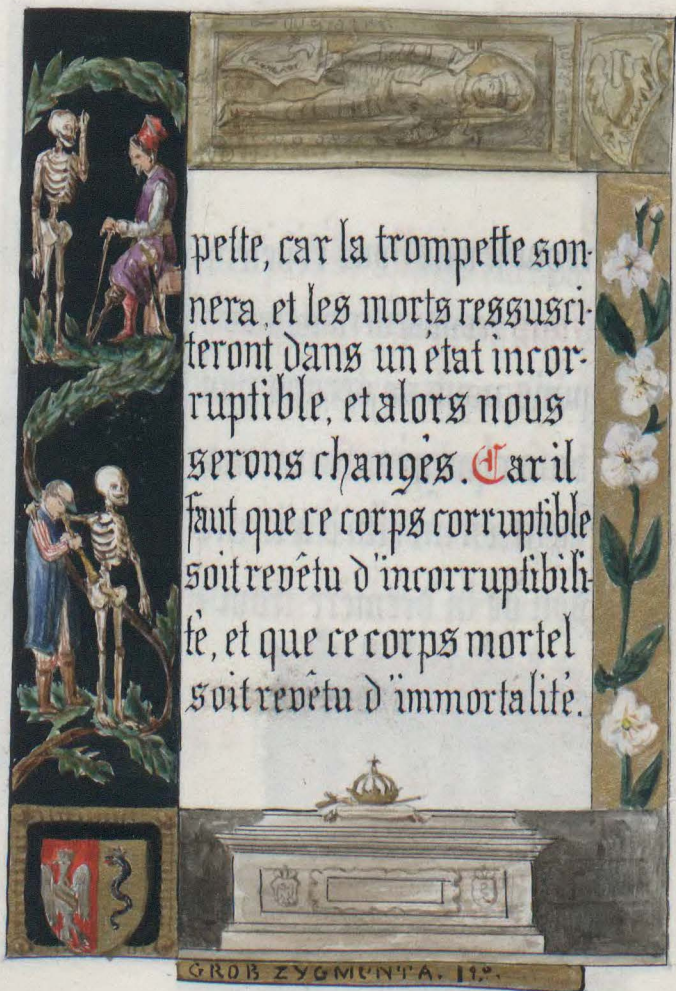 pette, car la trompette son-
nera, et les morts ressusci-
teront dans un état incor-
ruptible, et alors nous
serons changés. Car il
faut que ce corps corruptible
soit revêtu d'incorruptibili-
té, et que ce corps mortel
soit revêtu d'immortalité.
GROB ZYGMUNTA. Igo.